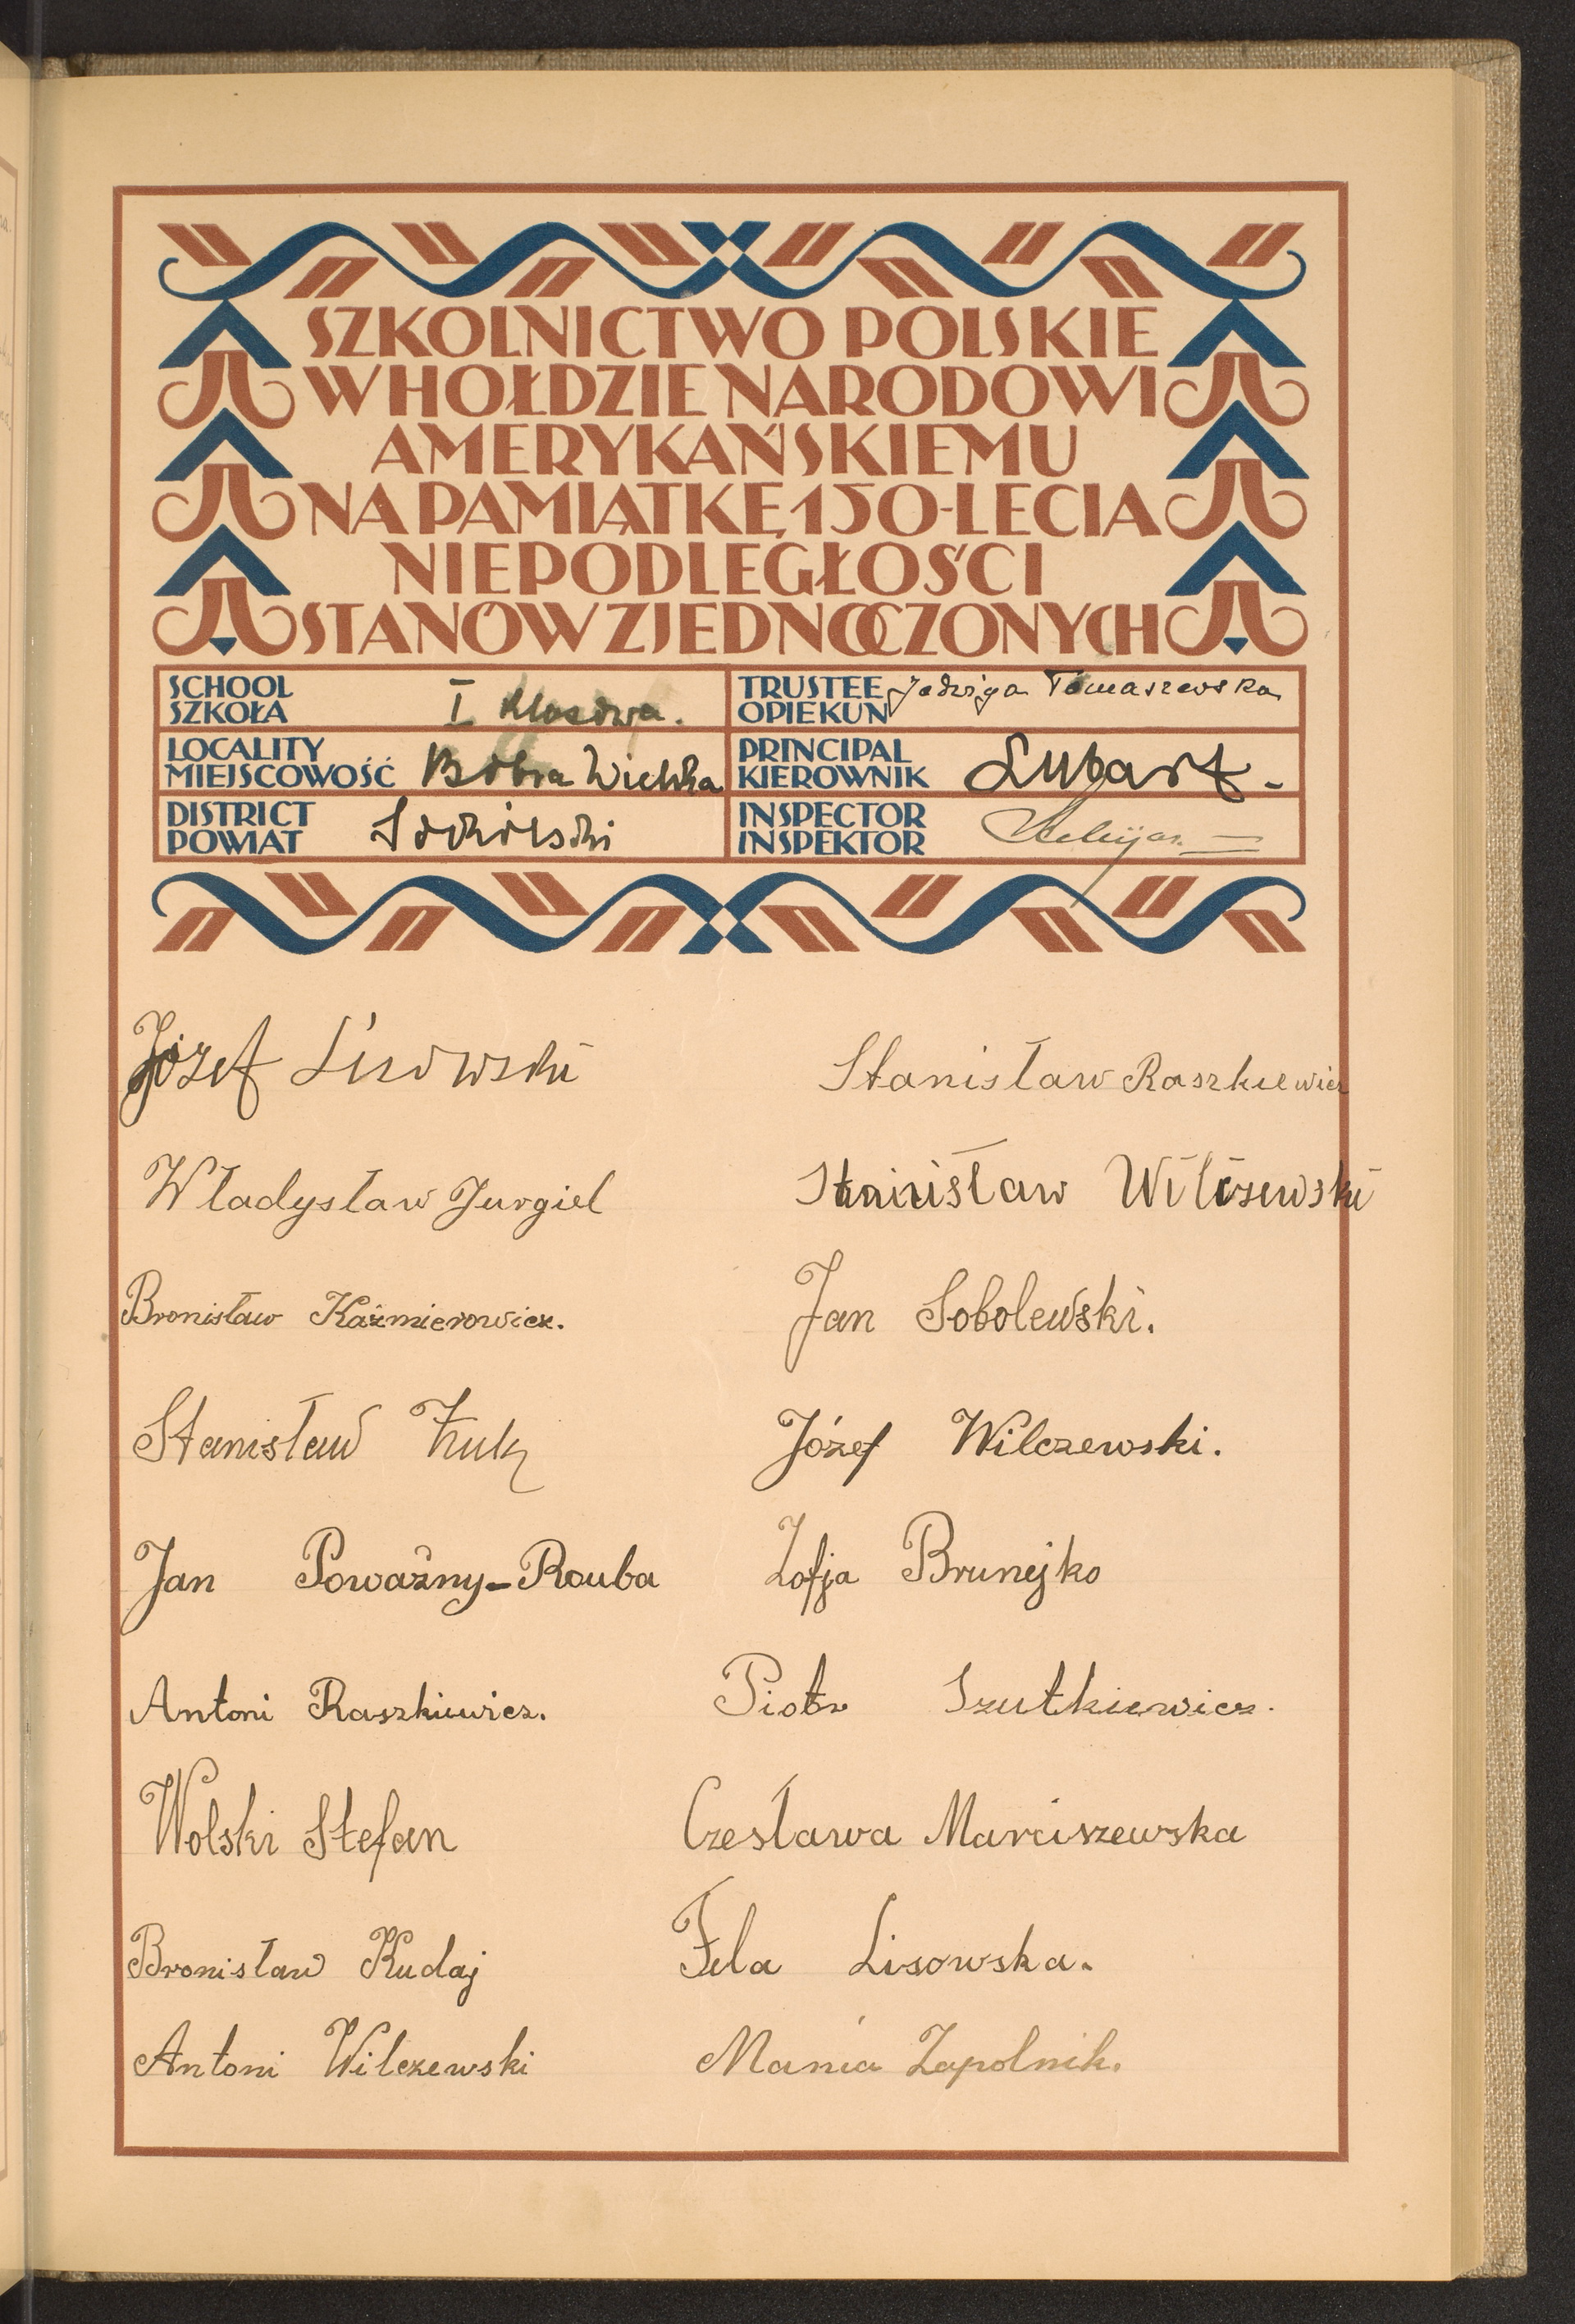 SZKOLNICTWO POLSKIE
W HOŁDZIE NARODOWI
AMERYKAŃSKIEMU
NA PAMIĄTKĘ 150-LECIA
NIEPODLEGŁOŚCI
STANÓW ZJEDNOCZONYCH
SCHOOL
SZKOŁA
I klasowa.
TRUSTEE
OPIEKUN
Jadwiga Tomaszewska
LOCALITY
MIEJSCOWOŚĆ
Bobra Wielka
PRINCIPAL
KIEROWNIK
Lubart
DISTRICT
POWIAT
Sokólski
INSPECTOR
INSPEKTOR
Józef Lisowski
Władysław Jurgiel
Bronisław Kaźmierowicz.
Stanisław Żuk
Jan Poważny-Rouba
Antoni Raszkiewicz.
Wolski Stefan
Bronisław Kudaj
Antoni Wilczewski
Stanisław Raszkiewicz
Stanisław Wilczewski
Jan Sobolewski.
Józef Wilczewski.
Zofja Brunejko
Piotr Szutkiewicz.
Czesława Marciszewska
Fela Lisowska.
Mania Zapolnik.